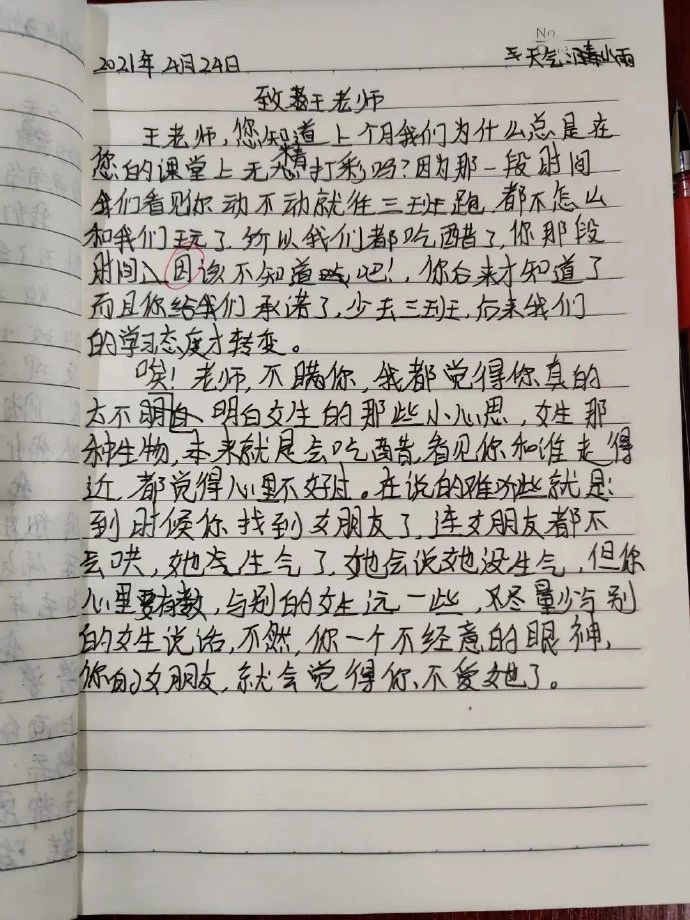 No.
2021年4月24日 天气:小雨
致王老师
王老师,您知道上个月我们为什么总是在
您的课堂上无精打彩吗?因为那一段时间
我们看见你动不动就往三班跑,都不怎么
和我们玩了,所以我们都吃醋了,你那段
时间因该不知道吧!,你后来才知道了
而且你给我们承诺了,少去三班,后来我们
的学习态度才转变。
唉!老师,不瞒你,我都觉得你真的
太不明白女生的那些小心思,女生那
种生物,本来就是会吃醋,看见你和谁走得
近,都觉得心里不好过。在说的难听些就是:
到时候你找到女朋友了,连女朋友都不
会哄,她生气了,她会说她没生气,但你
心里要有数,与别的女生远一些,尽量少与别
的女生说话,不然,你一个不经意的眼神,
你的女朋友,就会觉得你不爱她了。